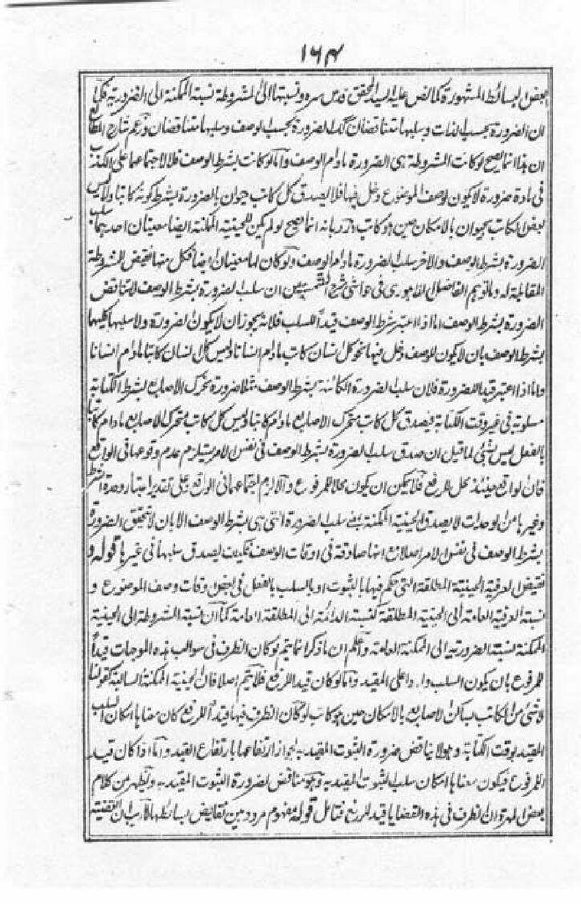 ١٦٤
بعض البسائط المشهورة كما نص عليه السيد المحقق قدس سره ونسبتها الى المشروطة نسبة الممكنة الى الضرورية فكما
ان الضرورة بحسب الذات وسلبها متناقضان كذا الضرورة بحسب الوصف وسلبها متناقضان وزعم شارح المطالع
ان هذا انما يصح لو كانت المشروطة هي الضرورة مادام الوصف واما لو كانت بشرط الوصف فلا لاجتماعهما على الكذب
في مادة ضرورة لا يكون لوصف الموضوع دخل فيها فلا يصدق كل كاتب حيوان بالضرورة بشرط كونه كاتبا ولا ليس
بعض الكاتب بحيوان بالامكان حين هو كاتب ورد بانه انما يصح لو لم يكن للحينية الممكنة ايضا معنيان احدهما سلب
الضرورة بشرط الوصف والاخر سلب الضرورة مادام الوصف ولو كان لها معنيان ايضا فكل منها نقيض للمشروطة
المقابلة له وما توهم الفاضل اللاهوري في حواشي شرح الشمسية من ان سلب الضرورة بشرط الوصف لا يناقض
الضرورة بشرط الوصف اما اذا اعتبر شرط الوصف قيدا للسلب فلانه يجوز ان لا يكون الضرورة ولا سلبها كليهما
بشرط الوصف بان لا يكون للوصف دخل فيها نحو كل انسان كاتب مادام انسانا وليس كل انسان كاتبا مادام انسانا
واما اذا اعتبر قيد الضرورة فلان سلب الضرورة الكائنة بشرط الوصف مثلا ضرورة تحرك الاصابع بشرط الكتابة
مسلوبة في غير وقت الكتابة فيصدق كل كاتب متحرك الاصابع مادام كاتبا وليس كل كاتب متحرك الاصابع مادام كاتبا
بالفعل ليس بشئ لما قيل ان صدق سلب الضرورة بشرط الوصف في نفس الامر يستلزم عدم وقوعها في الواقع
فان الواقع حينئذ محل للرفع فلا يمكن ان يكون محلا للمرفوع والا لزم اجتماعهما في الواقع على تقدير اعتبار وحدة الشرط
وغيرها من الوحدات لا يصدق الحينية الممكنة يعني سلب الضرورة التي هي بشرط الوصف الا بان لا تتحقق الضرورة
بشرط الوصف في نفس الامر اصلا مع انها صادقة في اوقات الوصف فكيف يصدق سلبها في غيرها قوله و
نقيض العرفية الحينية المطلقة التي حكم فيها بالثبوت او بالسلب بالفعل في بعض اوقات وصف الموضوع و
نسبة العرفية العامة الى الحينية المطلقة كنسبة الدائمة الى المطلقة العامة كما ان نسبة المشروطة الى الحينية
الممكنة نسبة الضرورية الى الممكنة العامة واعلم ان ما ذكر انما يتم لو كان الظرف في سوالب هذه الموجبات قيدا
للمرفوع بان يكون السلب واردا على المقيد واما لو كان قيد الرفع فلا يتم اصلا فان الحينية الممكنة السالبة كقولنا
لا شئ من الكاتب بساكن الاصابع بالامكان حين هو كاتب لو كان الظرف فيها قيد الرفع كان معناها امكان السلب
المقيد بوقت الكتابة وهو لا يناقض ضرورة الثبوت المقيد به لجواز ارتفاعهما بارتفاع القيد واما اذا كان قيد
المرفوع فيكون معناها امكان سلب الثبوت المقيد به وهو مناقض لضرورة الثبوت المقيد به ويظهر من كلام
بعض المهرة ان الظرف في هذه القضايا قيد للرفع فتامل قوله مفهوم مردد بين نقايض بسائطها لا ريب ان القضية